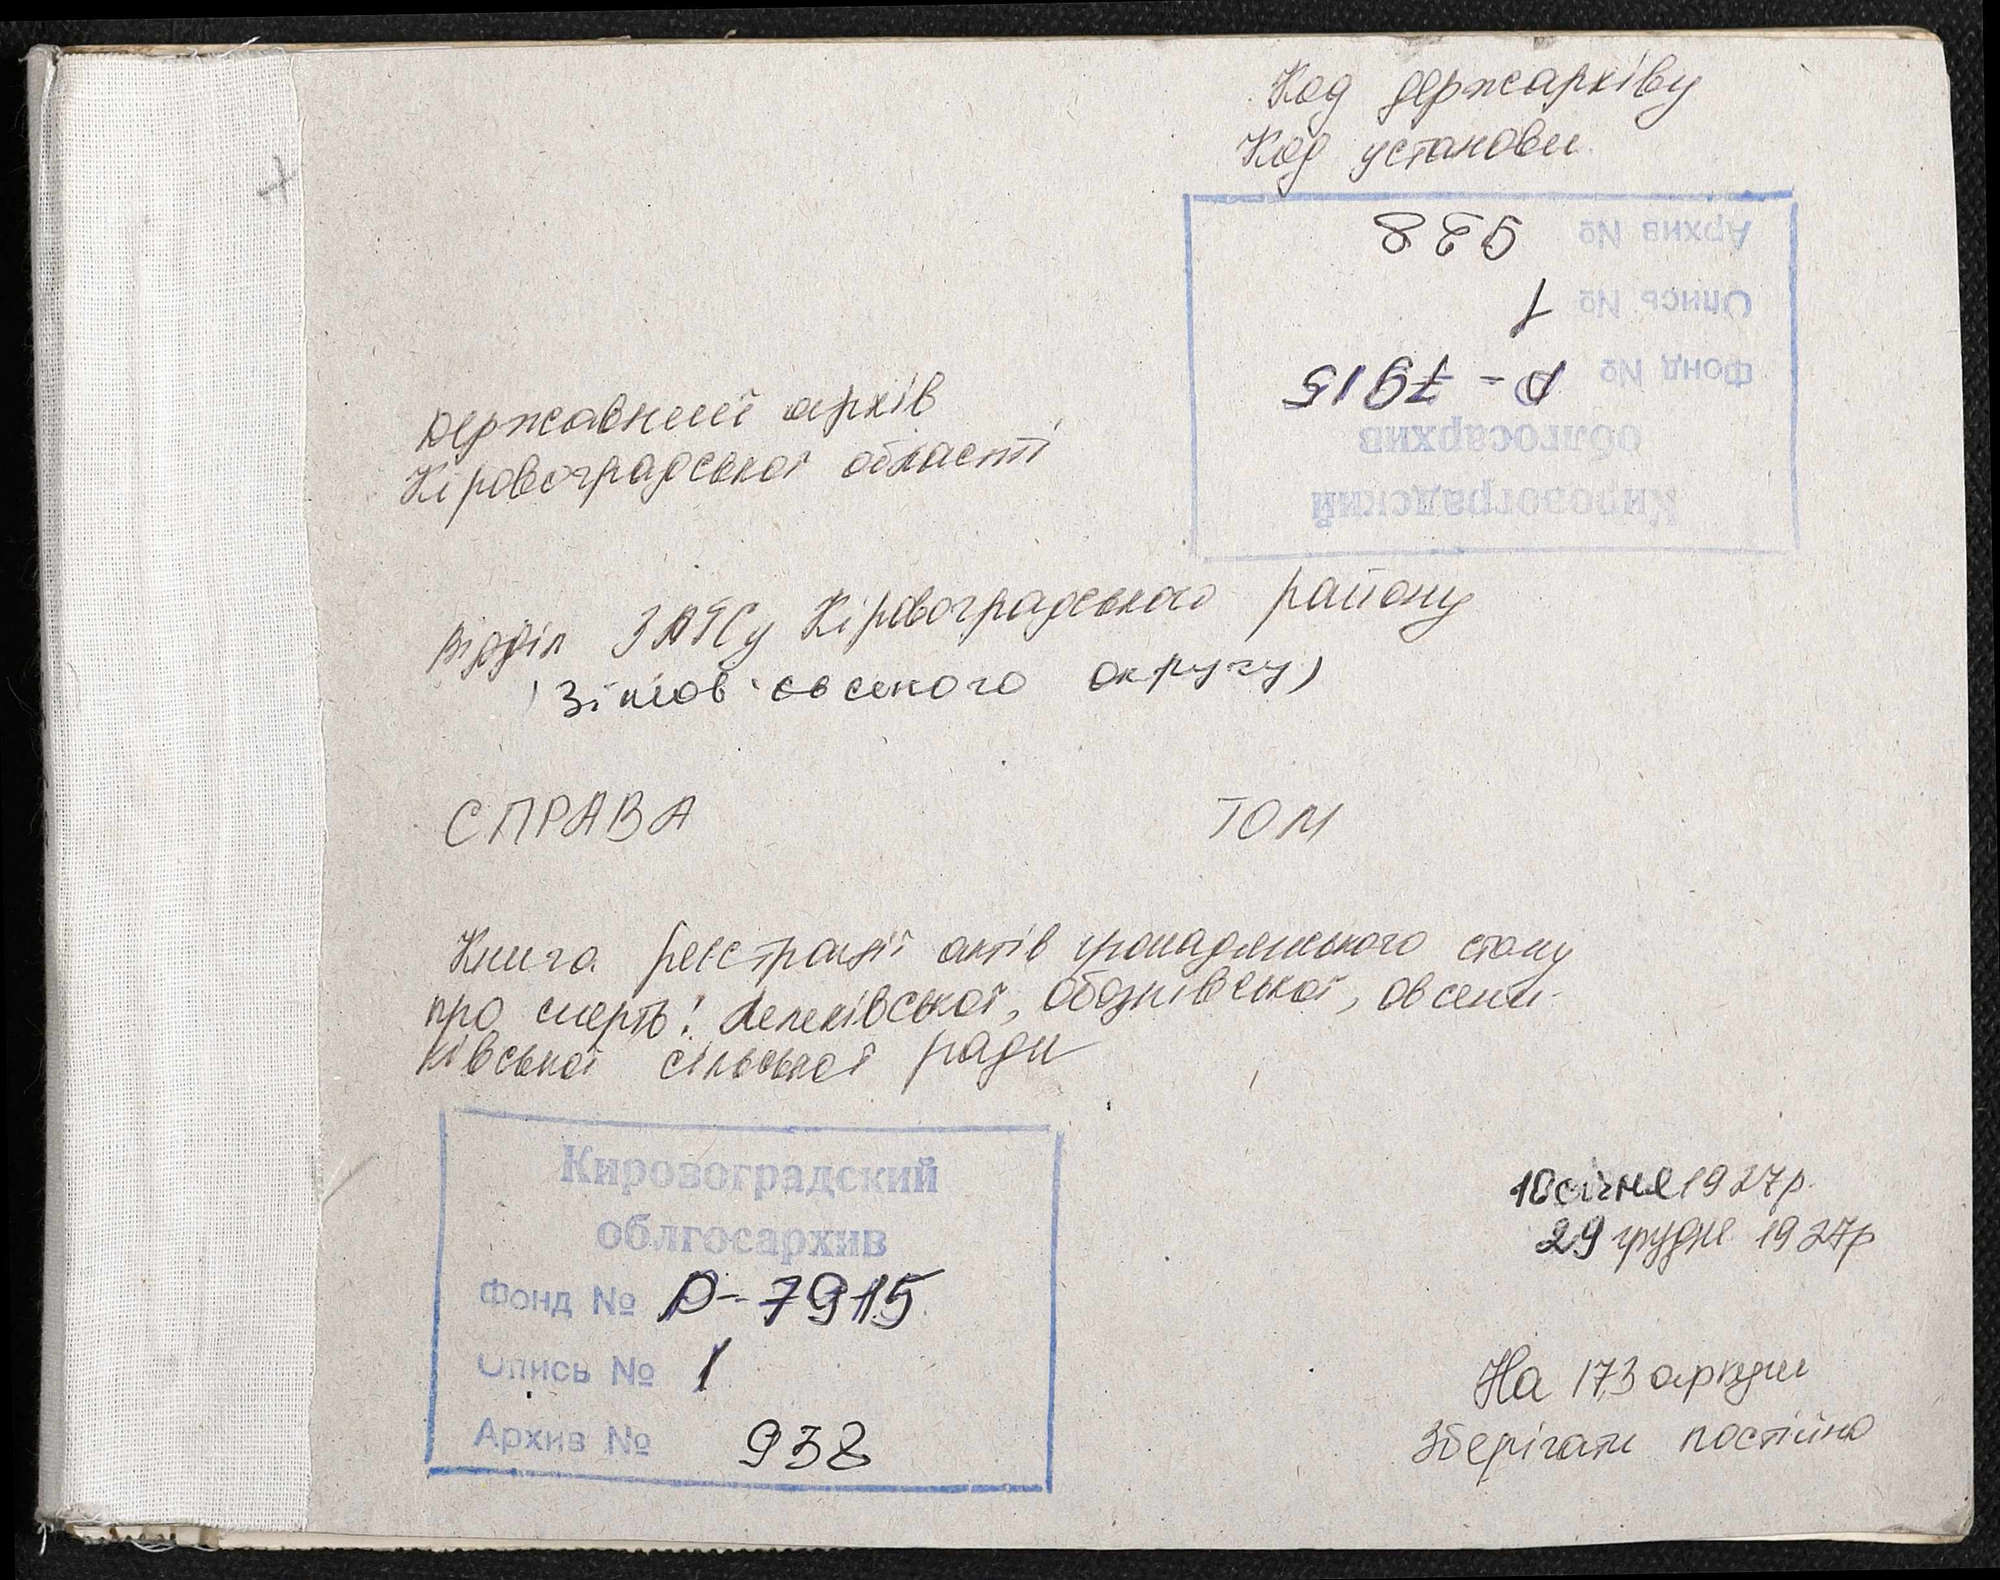 Код держархіву
Код установи
Архив № 938
Опись № 1
Фонд № Р-7915
облгосархив
Кировоградский
Державний архів
Кіровоградської області
Відділ ЗАГСу Кіровоградського району
(Зінов'євського округу)
СПРАВА ТОМ
Книга реєстрації актів громадянського стану
про смерть: Лелеківської, Обознівської, Овсяни-
ківської сільської ради
Кировоградский
облгосархив
Фонд № Р-7915
Опись № 1
Архив № 938
січня 1927р.
29 грудня 1927р
На 173 аркуши
Зберігати постійно